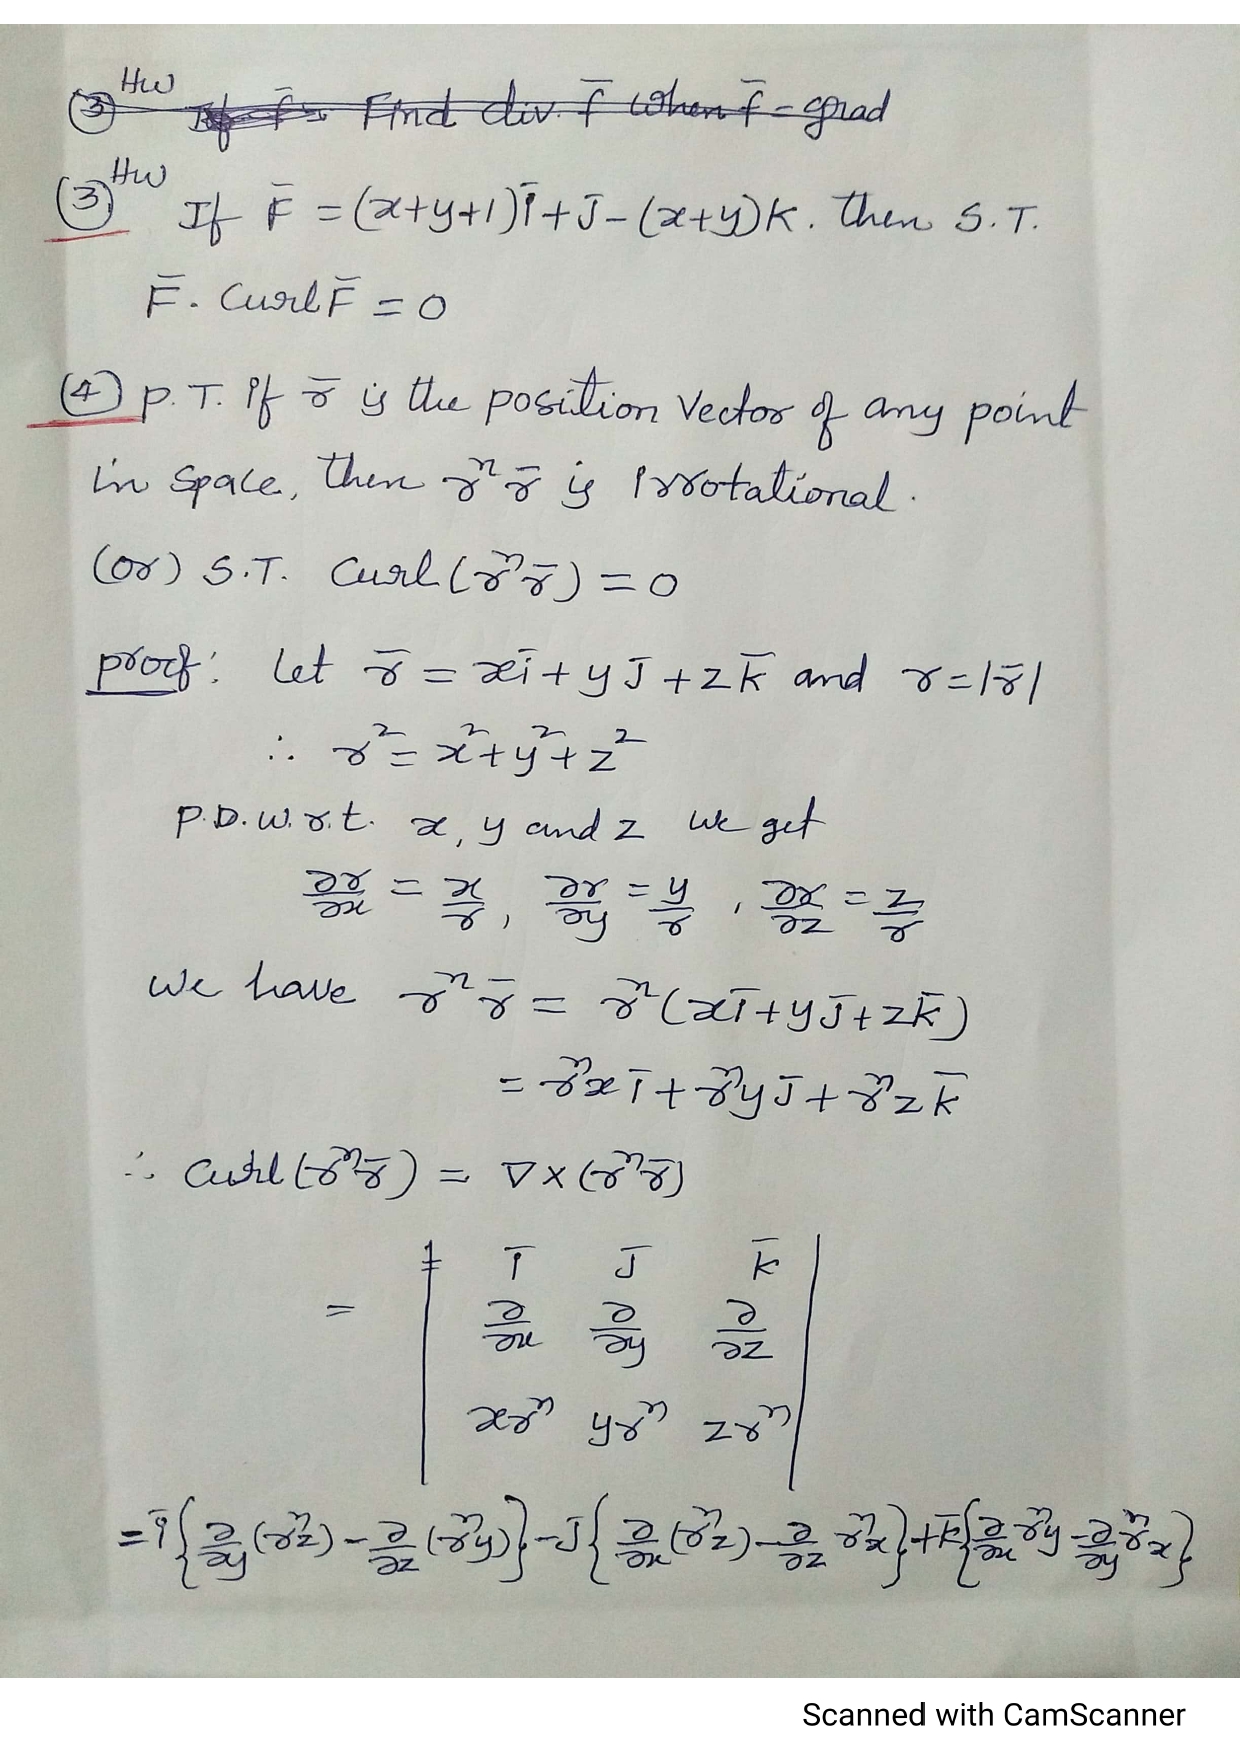 HW
(3) If f̄ = Find div. f̄ when f̄ = grad
HW
(3) If F̄ = (x+y+1)ī + j̄ - (x+y)k. then S.T.
F̄. Curl F̄ = 0
(4) P.T. if r̄ is the position vector of any point
in space, then rⁿ r̄ is irrotational.
(or) S.T. Curl (rⁿ r̄) = 0
proof: Let r̄ = xī + yj̄ + zk̄ and r = |r̄|
∴ r² = x² + y² + z²
P.D.w.r.t. x, y and z we get
∂r/∂x = x/r, ∂r/∂y = y/r, ∂r/∂z = z/r
we have rⁿ r̄ = rⁿ(xī + yj̄ + zk̄)
= rⁿxī + rⁿyj̄ + rⁿzk̄
∴ Curl (rⁿ r̄) = ∇ × (rⁿ r̄)
= | ī j̄ k̄ |
| ∂/∂x ∂/∂y ∂/∂z |
| xrⁿ yrⁿ zrⁿ |
= ī{∂/∂y (rⁿz) - ∂/∂z (rⁿy)} - j̄{∂/∂x (rⁿz) - ∂/∂z rⁿx} + k̄{∂/∂x rⁿy - ∂/∂y rⁿx}
Scanned with CamScanner